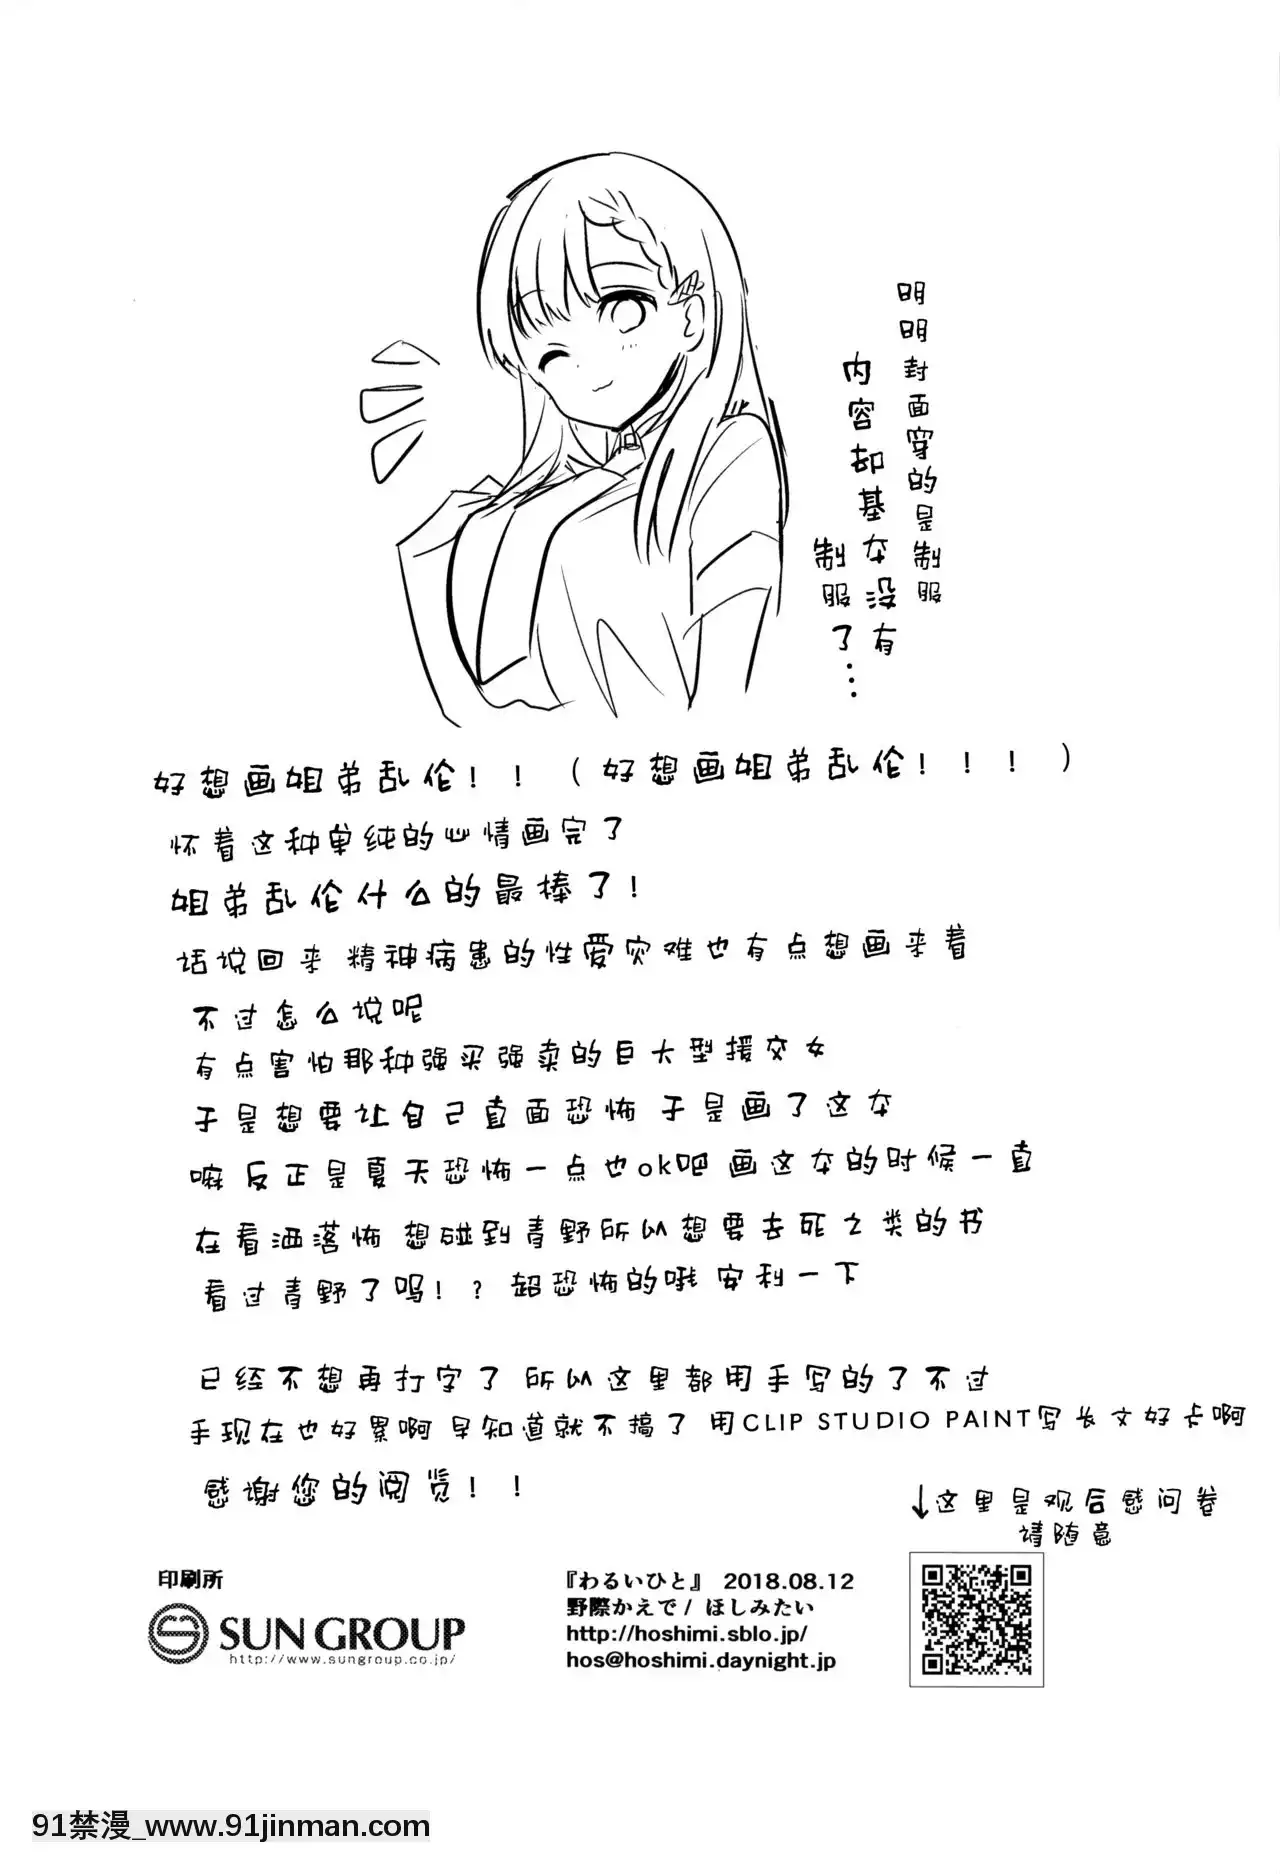 明明封面穿的是制服
内容却基本没有
制服了…
好想画姐弟乱伦！！（好想画姐弟乱伦！！！）
怀着这种单纯的心情画完了
姐弟乱伦什么的最棒了！
话说回来 精神病患的性爱灾难也有点想画来着
不过怎么说呢
有点害怕那种强买强卖的巨大型援交女
于是想要让自己直面恐怖 于是画了这本
嘛 反正是夏天恐怖一点也ok吧 画这本的时候一直
在看洒落怖 想碰到青野所以想要去死之类的书
看过青野了吗！？超恐怖的哦 安利一下
已经不想再打字了 所以这里都用手写的了不过
手现在也好累啊 早知道就不搞了 用CLIP STUDIO PAINT写长文好卡啊
感谢您的阅览！！
↓这里是观后感问卷
请随意
印刷所
SUN GROUP
http://www.sungroup.co.jp/
『わるいひと』 2018.08.12
野際かえで/ ほしみたい
http://hoshimi.sblo.jp/
hos@hoshimi.daynight.jp
91禁漫_www.91jinman.com